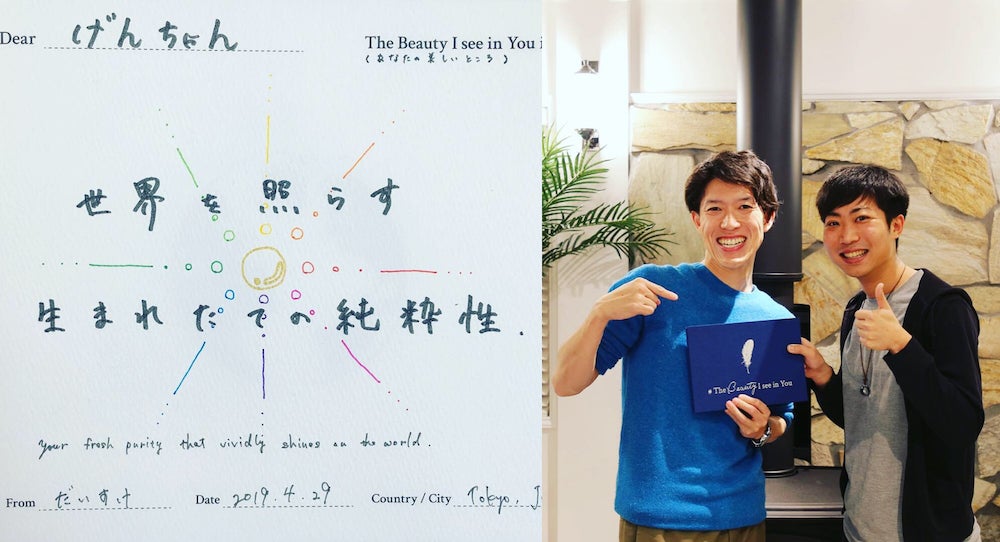 Dear げんちょん
The Beauty I see in You i
(あなたの美しいところ)
世界を照らす
生まれたての純粋性.
your fresh purity that vividly shines on the world.
From だいすけ Date 2019.4.29 Country / City Tokyo, J
# The Beauty I see in You